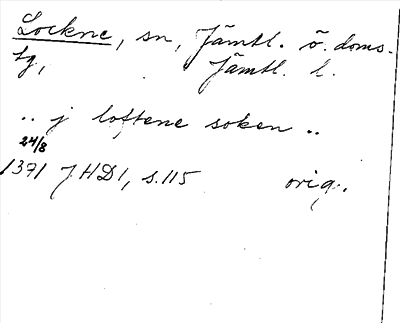 Lockne, sn, Jämtl. ö. doms.
tg, Jämtl. l.
.. j loftene soken ..
24/8
1371 JHD1, s.115 orig.